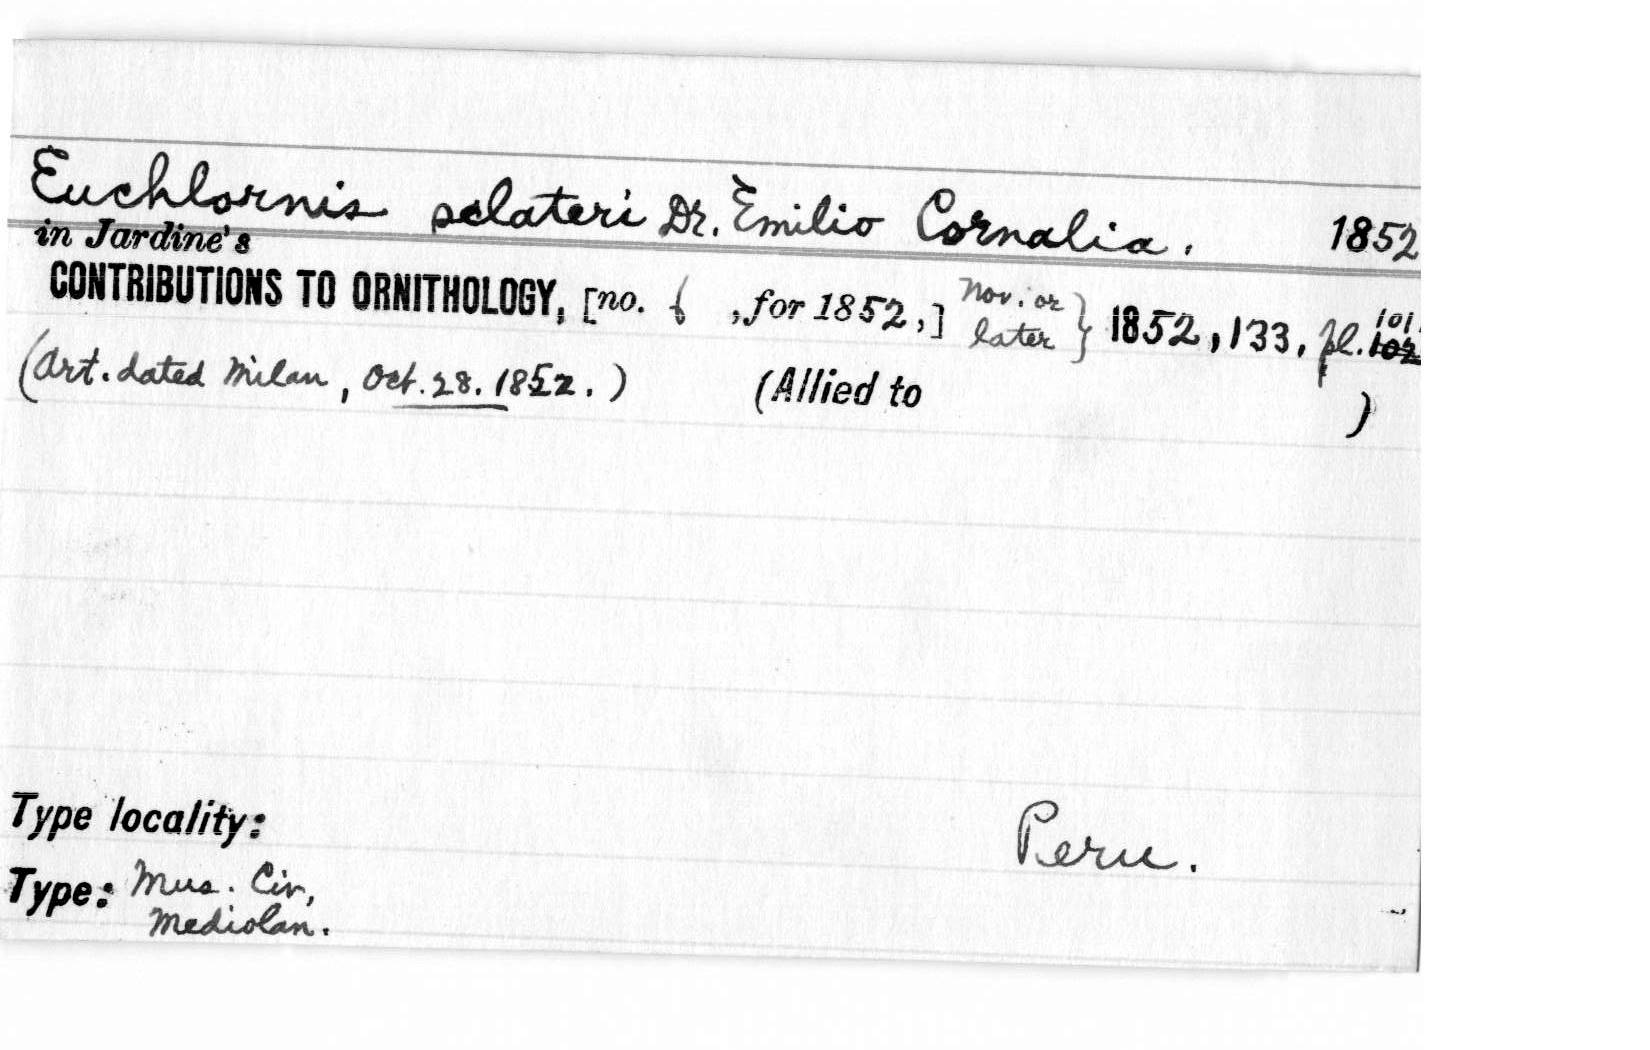 Euchlornis sclateri Dr. Emilio Cornalia. 1852
in Jardine's
CONTRIBUTIONS TO ORNITHOLOGY, [no. , for 1852,] Nov. or later } 1852, 133, pl. 101. 102
(Art. dated Milan, Oct. 28. 1852.) (Allied to )
Type locality: Peru.
Type: Mus. Civ,
Mediolan.